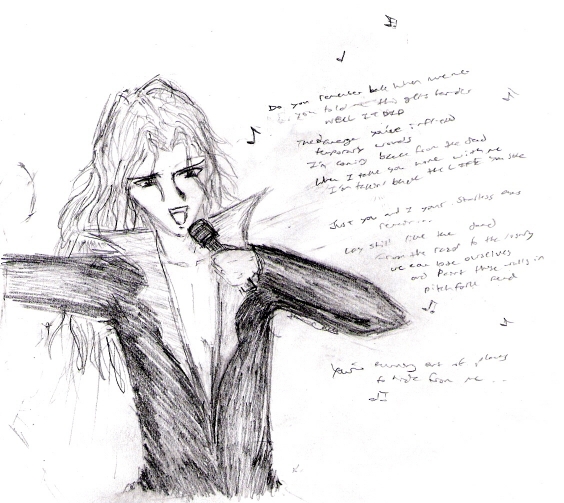 Do you remember back when we met
you told me this gets harder
WELL IT DID
The damage you've inflicted
temporary wounds
I'm coming back from the dead
When I take you home with me
I'm taking back the LIFE you stole
Just you and I your Starless eyes
remain...
Lay still like the dead
From the razor to the rosary
we can lose ourselves
and Paint these walls in
pitchfork red
You're running out of places
to hide from me ...